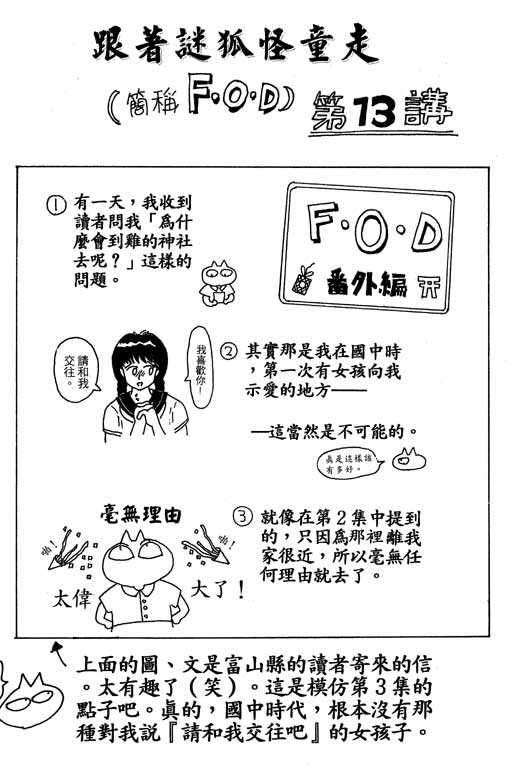 跟著謎狐怪童走
(簡稱F·O·D) 第13講
① 有一天，我收到
讀者問我「為什
麼會到雞的神社
去呢？」這樣的
問題。
F·O·D
番外編
② 其實那是我在國中時
，第一次有女孩向我
示愛的地方——
我喜歡你！
請和我
交往。
—這當然是不可能的。
真是這樣該
有多好。
③ 就像在第２集中提到
的，只因為那裡離我
家很近，所以毫無任
何理由就去了。
毫無理由
啪！
啪！
太偉
大了！
上面的圖、文是富山縣的讀者寄來的信
。太有趣了（笑）。這是模仿第３集的
點子吧。真的，國中時代，根本沒有那
種對我說『請和我交往吧』的女孩子。